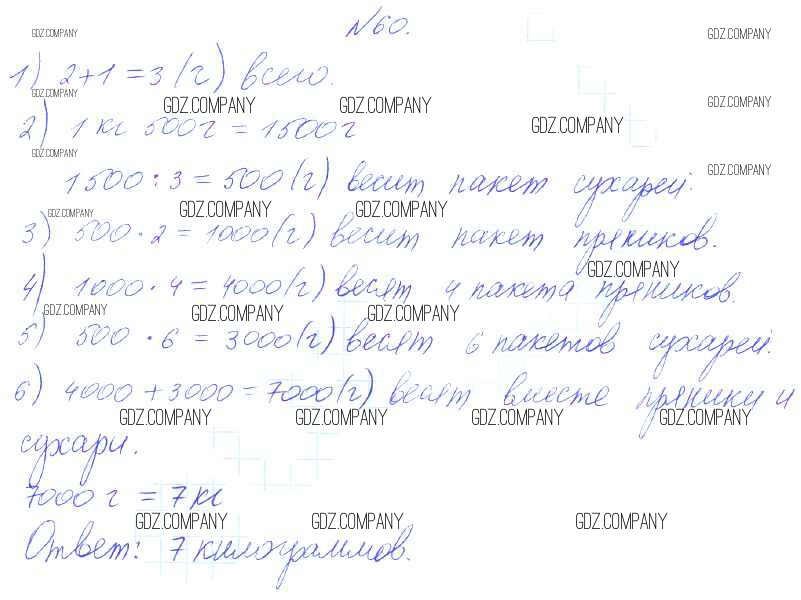 №60.
1) 2+1=3 (г) всего.
2) 1 кг 500г = 1500г
1500:3=500(г) весит пакет сухарей.
3) 500·2=1000(г) весит пакет пряников.
4) 1000·4=4000(г) весят 4 пакета пряников.
5) 500·6=3000(г) весят 6 пакетов сухарей.
6) 4000+3000=7000(г) весят вместе пряники и
сухари.
7000г = 7кг
Ответ: 7 килограммов.
GDZ.COMPANY GDZ.COMPANY
GDZ.COMPANY GDZ.COMPANY
GDZ.COMPANY GDZ.COMPANY GDZ.COMPANY
GDZ.COMPANY GDZ.COMPANY
GDZ.COMPANY GDZ.COMPANY GDZ.COMPANY
GDZ.COMPANY
GDZ.COMPANY GDZ.COMPANY GDZ.COMPANY
GDZ.COMPANY GDZ.COMPANY GDZ.COMPANY GDZ.COMPANY
GDZ.COMPANY GDZ.COMPANY GDZ.COMPANY